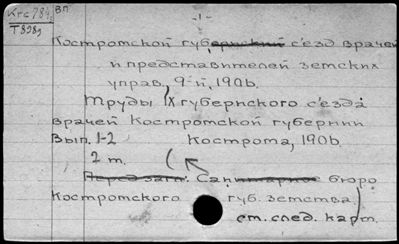 Кгс 784 ВП
-1-
Т8989
Костромской губернский с'езд врачей
и представителей земских
управ, 9-й, 1906.
Труды IX губернского с'езда
врачей Костромской губернии
Вып. 1-2 Кострома, 1906.
2 т.
Перед загл. Санитарное бюро
Костромского губ. земства)
см. след. карт.